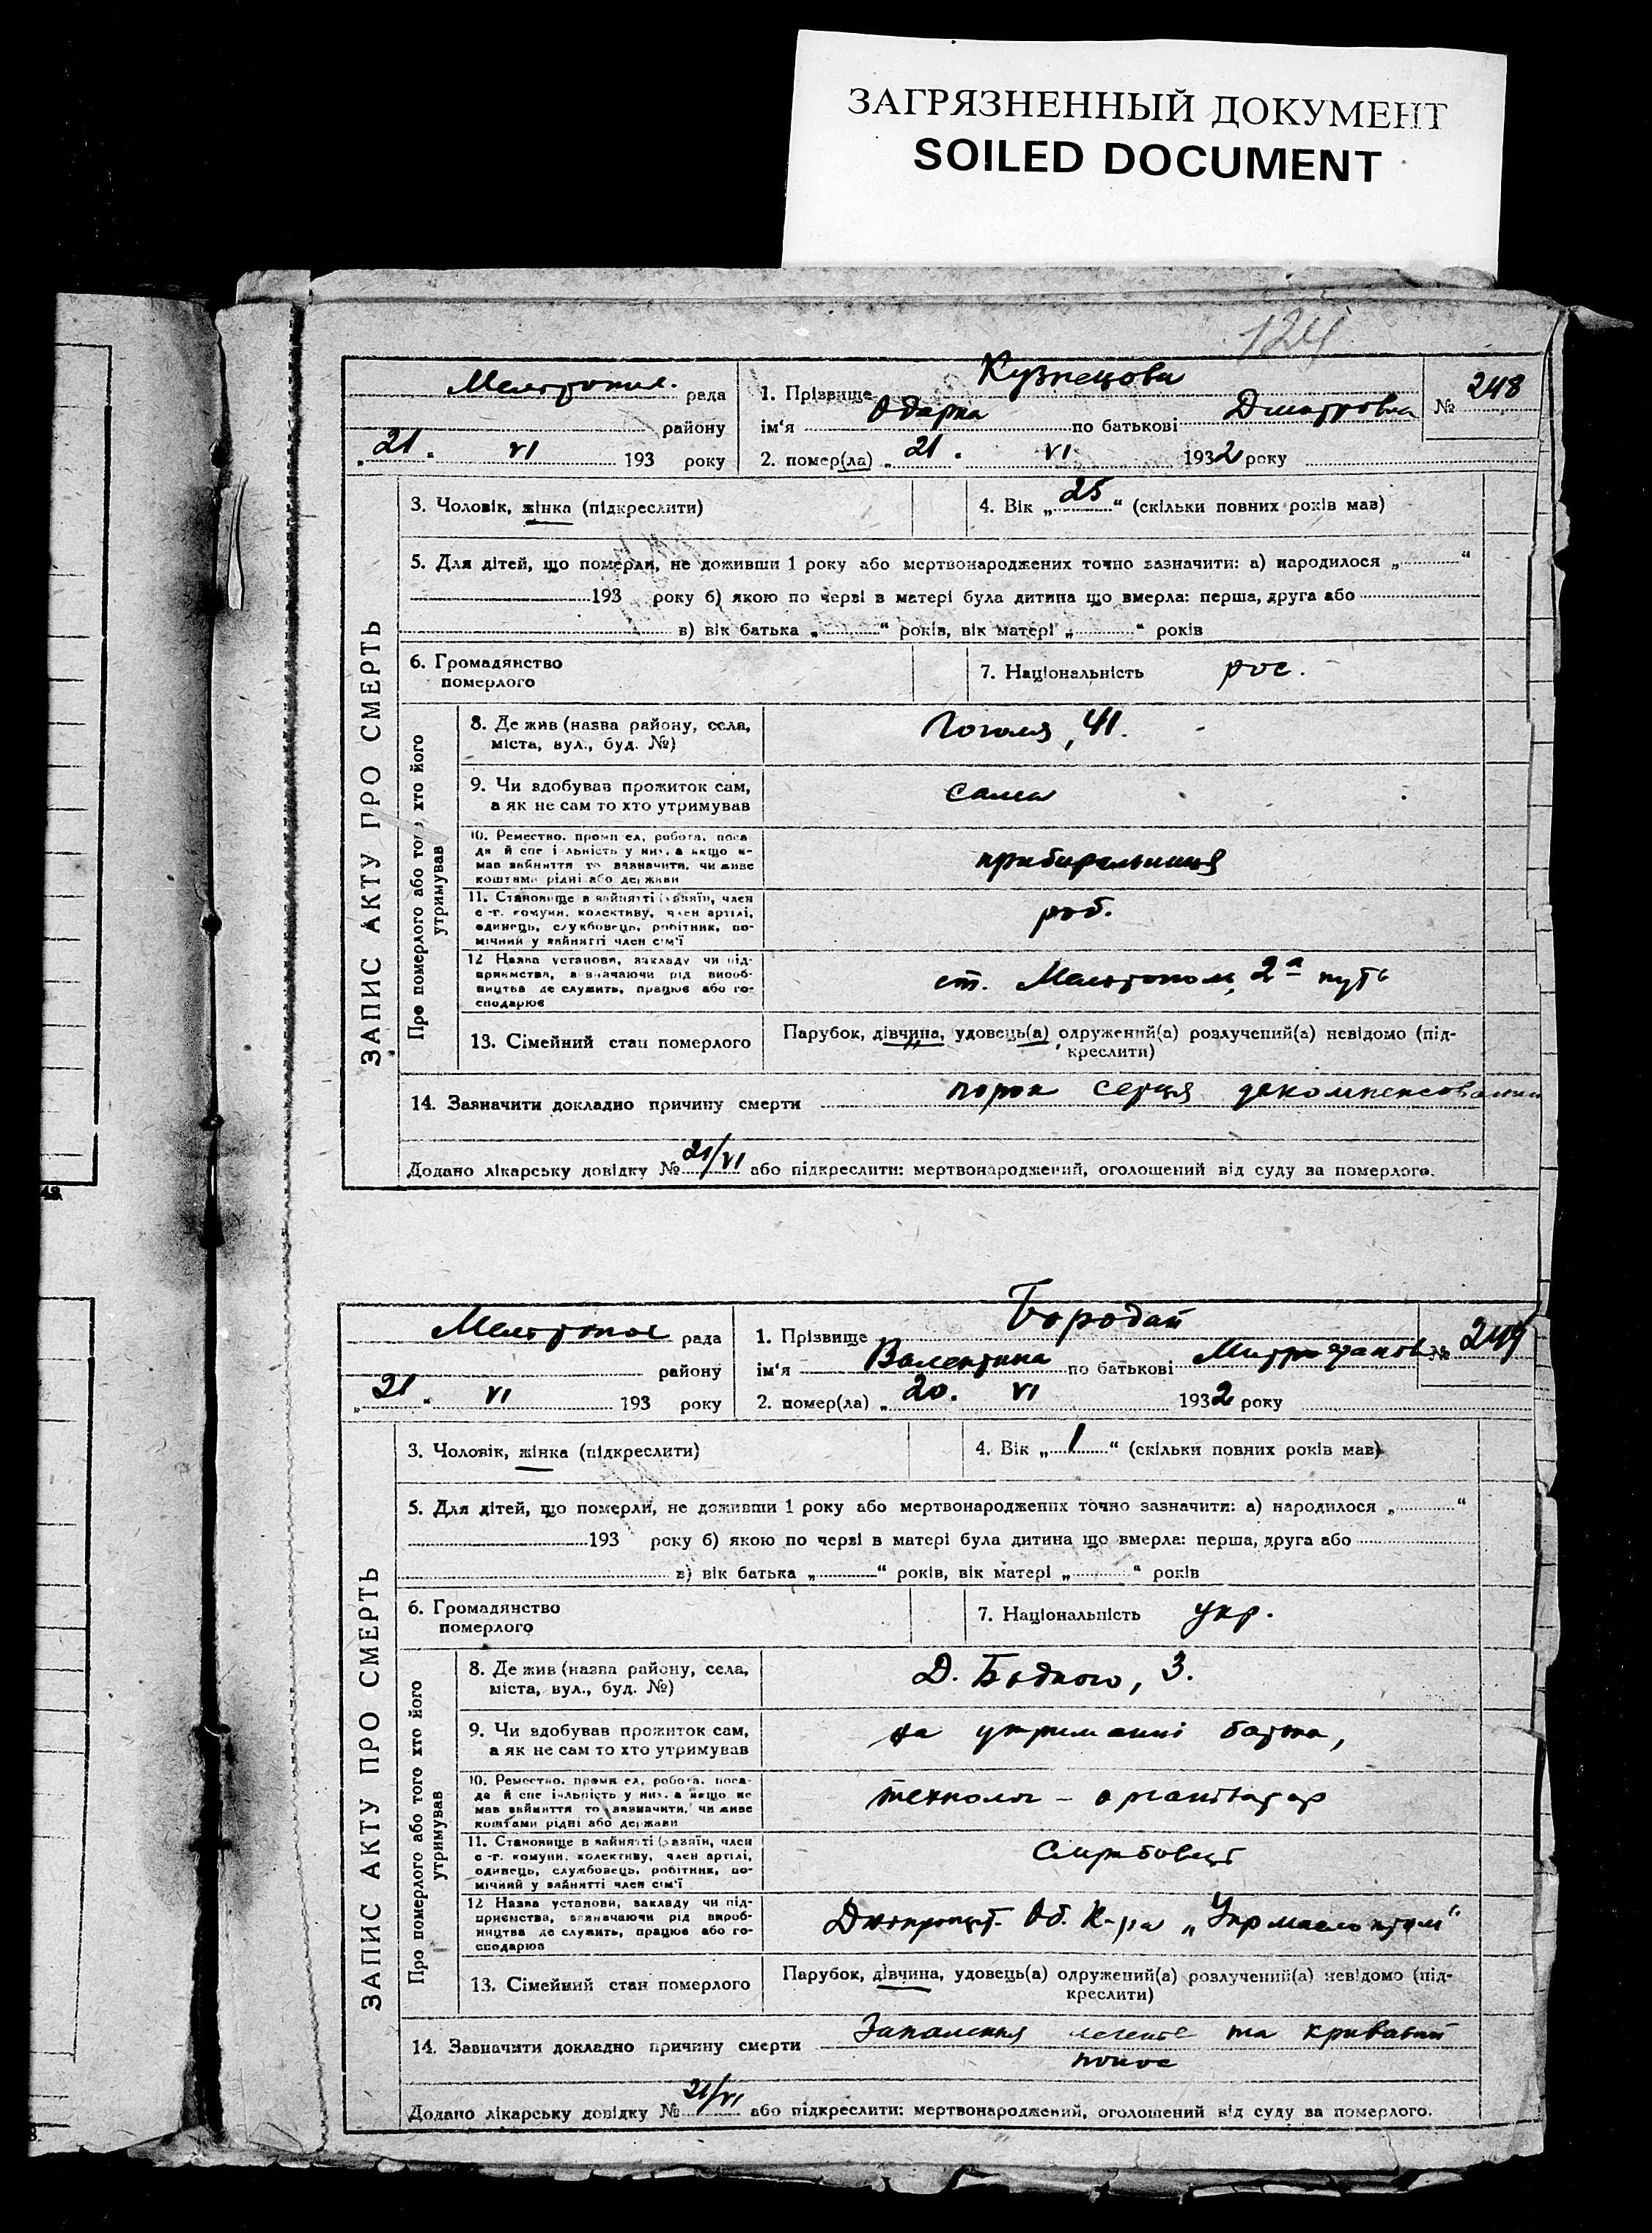 ЗАГРЯЗНЕННЫЙ ДОКУМЕНТ
SOILED DOCUMENT
124
ЗАПИС АКТУ ПРО СМЕРТЬ
Мелітопіл. рада
району
„21“ VI 193 року
1. Прізвище Кузнецова
№ 248
ім‘я Одарка по батькові Дмитровна
2. помер(ла) „21“ VI 1932 року
3. Чоловік, жінка (підкреслити)
4. Вік „25“ (скільки повних років мав)
5. Для дітей, що померли, не доживши 1 року або мертвонароджених точно зазначити: а) народилося „ “
193 року б) якою по черзі в матері була дитина що вмерла: перша, друга або
в) вік батька „ “ років, вік матері „ “ років
6. Громадянство
померлого
7. Національність рос.
Про померлого або того хто його
утримував
8. Де жив (назва району, села,
міста, вул., буд. №)
Гоголя, 41.
9. Чи здобував прожиток сам,
а як не сам то хто утримував
сама
10. Ремество, промисел, робота, поса-
да й спеціальність у них, а якщо не
мав зайняття то зазначити, чи живе
коштами рідні або держави
прибиральниця
11. Становище в зайнятті (хазяїн, член
с.-г. комуни, колективу, член артілі,
одинець, службовець, робітник, по-
мічний у зайнятті член сім‘ї
роб.
12 Назва установи, закладу чи під-
приємства, зазначаючи рід вироб-
ництва де служить, працює або го-
сподарює
ст. Мелітополь, 2а путь
13. Сімейний стан померлого
Парубок, дівчина, удовець(а) одружений(а) розлучений(а) невідомо (під-
креслити)
14. Зазначити докладно причину смерти порок серця декомпенсований
Додано лікарську довідку № 21/VI або підкреслити: мертвонароджений, оголошений від суду за померлого.
ЗАПИС АКТУ ПРО СМЕРТЬ
Мелітопіл рада
району
„21“ VI 193 року
1. Прізвище Бородай
№ 249
ім‘я Валентина по батькові Митрофанов
2. помер(ла) „20. VI 1932 року
3. Чоловік, жінка (підкреслити)
4. Вік „1“ (скільки повних років мав)
5. Для дітей, що померли, не доживши 1 року або мертвонароджених точно зазначити: а) народилося „ “
193 року б) якою по черзі в матері була дитина що вмерла: перша, друга або
в) вік батька „ “ років, вік матері „ “ років
6. Громадянство
померлого
7. Національність укр.
Про померлого або того хто його
утримував
8. Де жив (назва району, села,
міста, вул., буд. №)
Д. Бедного, 3.
9. Чи здобував прожиток сам,
а як не сам то хто утримував
на утриманні батька,
10. Ремество, промисел, робота, поса-
да й спеціальність у них, а якщо не
мав зайняття то зазначити, чи живе
коштами рідні або держави
технолог - організатор
11. Становище в зайнятті (хазяїн, член
с.-г. комуни, колективу, член артілі,
одинець, службовець, робітник, по-
мічний у зайнятті член сім‘ї
службовець
12 Назва установи, закладу чи під-
приємства, зазначаючи рід вироб-
ництва де служить, працює або го-
сподарює
Дніпропет. Об. К-ра
13. Сімейний стан померлого
Парубок, дівчина, удовець(а) одружений(а) розлучений(а) невідомо (під-
креслити)
14. Зазначити докладно причину смерти Запалення легенів та кривавий
понос
Додано лікарську довідку № 21/VI або підкреслити: мертвонароджений, оголошений від суду за померлого.